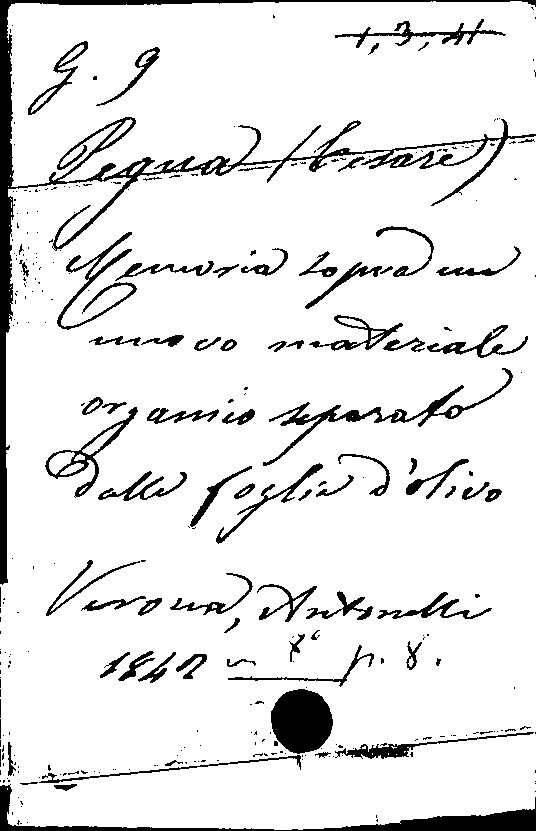 1, 3, 41
G. 9
Pegna (Cesare)
Memoria sopra un
nuovo materiale
organico separato
dalle foglie d'olivo
Verona, Antonelli
1842 in 8° p. 8.